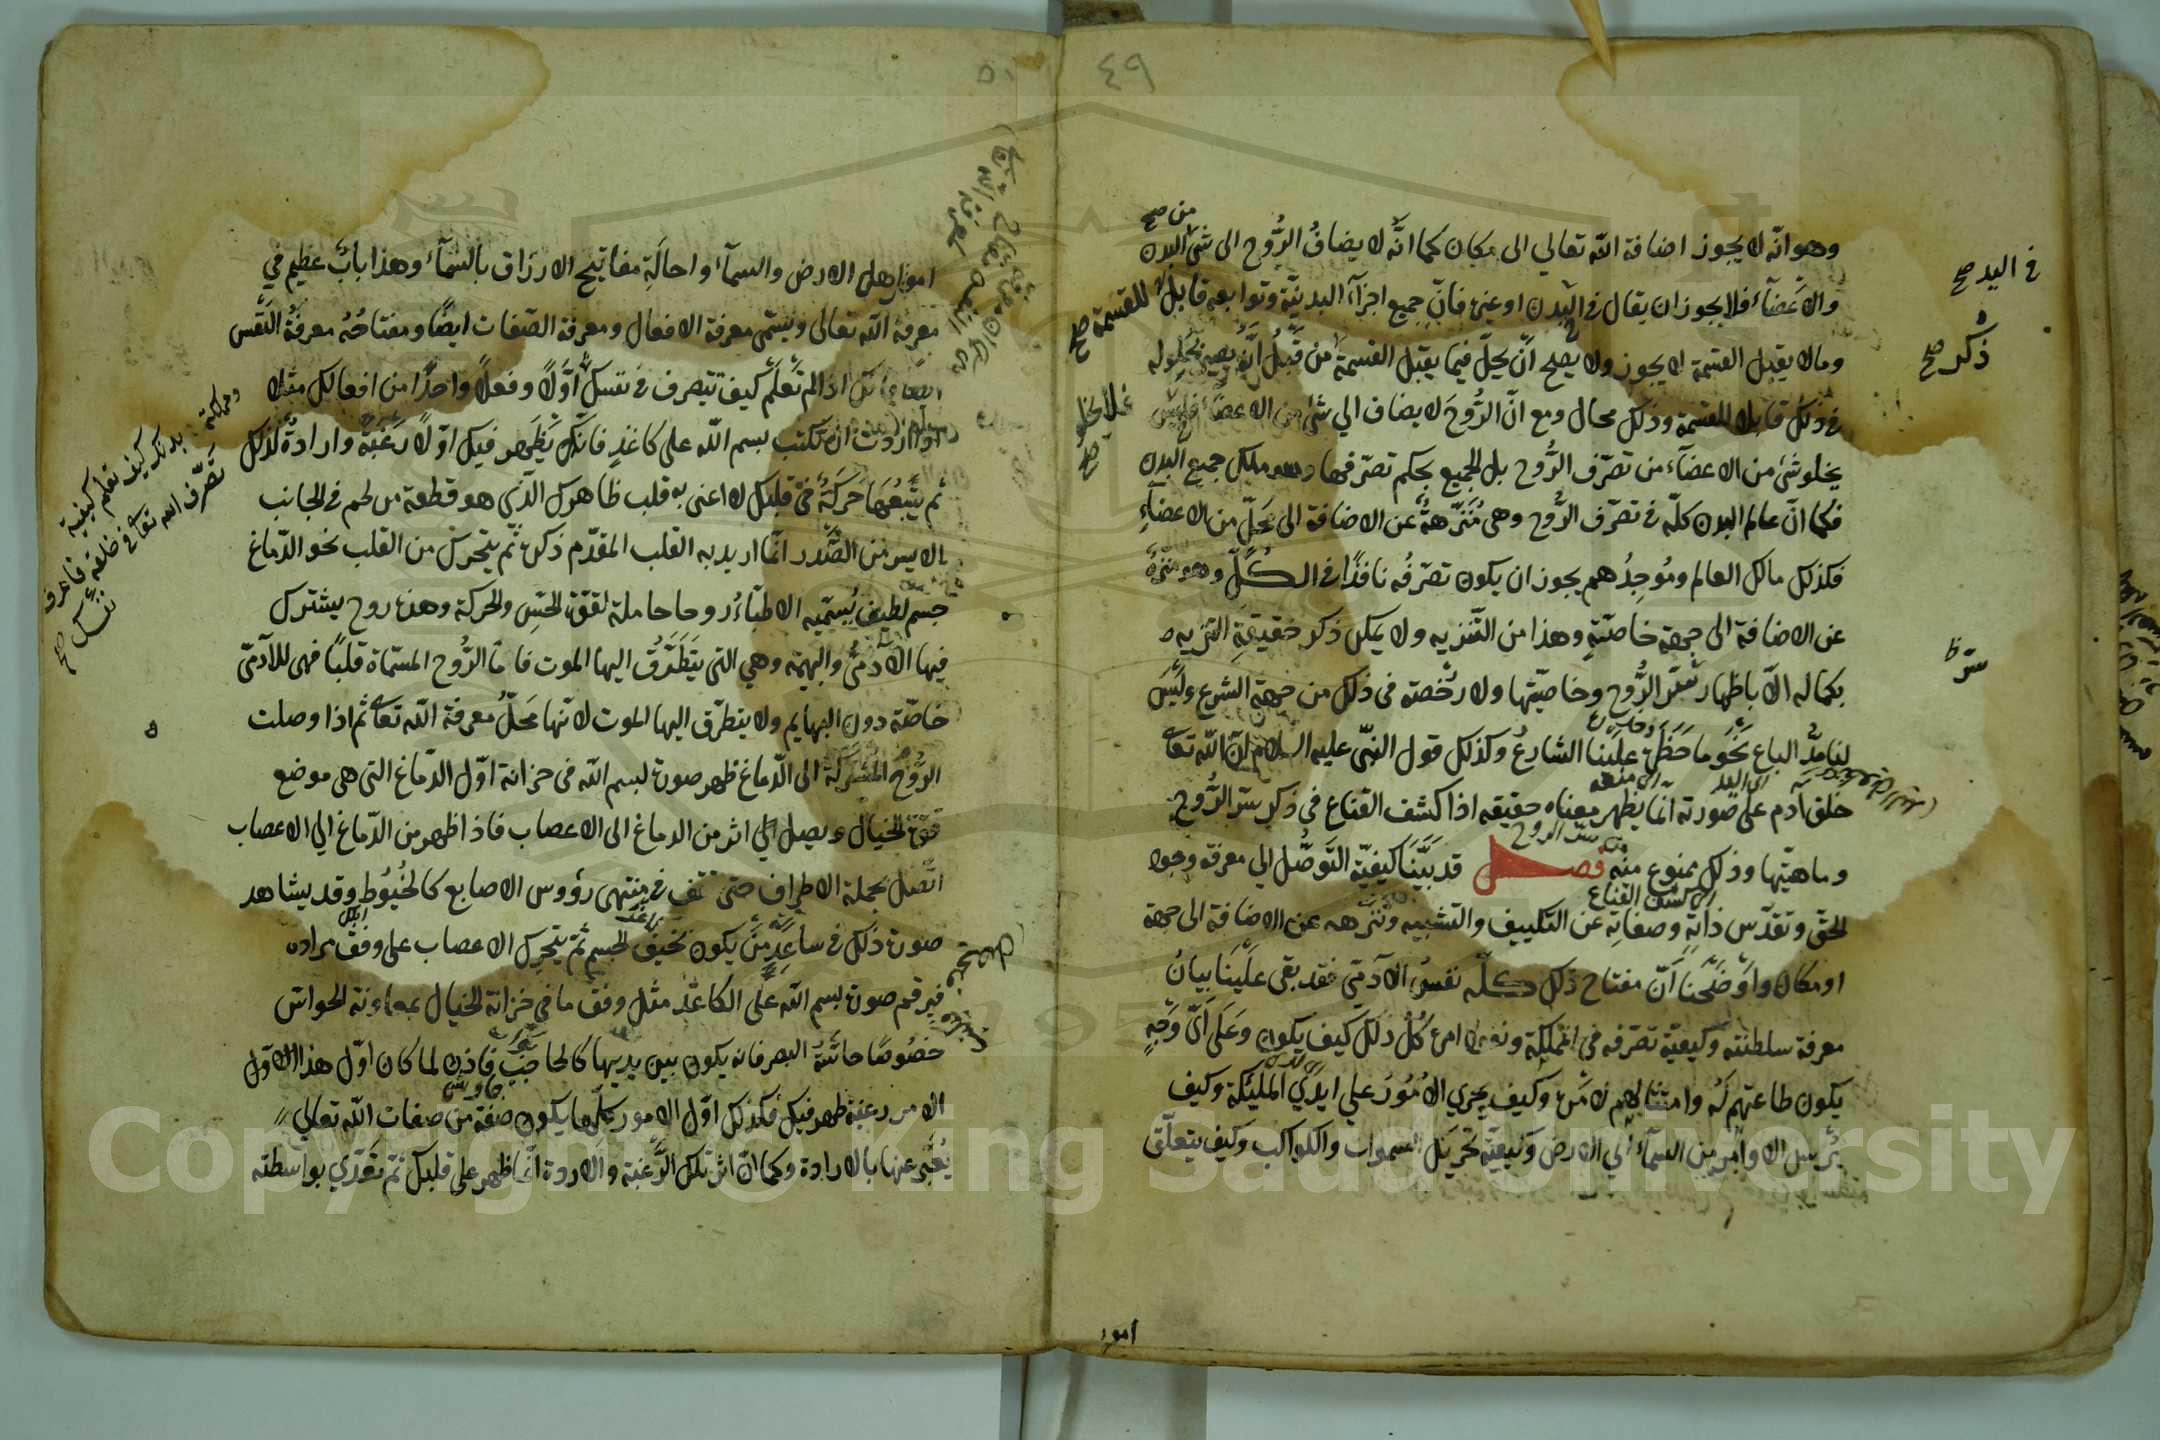 ٤٩
وهو انّه لا يجوز اضافة الله تعالي الى مكان كما انّه لا يضافُ الرُّوح الى شئ البدن
من صح
والاَعْضَآء فلا يجوز ان يقال في البدن او عنى فانّ جميع اجزآء البدنيّة وتوابعه قابل للقسمة صح
في اليد صح
وما لا يقبل القسمة لا يجوز ولا يصلح انّ يحلّ فيما يقبل القسمة من قبل انّه يصير بحلوله
ذُكر صح
في ذلك قابلا للقسمة وذلك محال ومع انّ الرُّوحَ لا يضاف الي شئ من الاعضآء فليس
يخلو شئ من الاعضآء من تصرّف الرُّوح بل الجميع بحكم تصرّفها وهو ملك جميع البدن
فكما انّ عالم البدن كلّه في تصرّف الرُّوح وهى مُنَزّهةٌ عن الاضافة الى محلّ من الاعضآءِ
فكذلك مالك العالم ومُوجِدُهم يجوز ان يكون تصرّفُه نافذًا في الكُلّ وهو منزّهٌ
عن الاضافة الى جهة خاصّيّةٍ وهذا من التّنزيه ولا يمكن ذكر حقيقةِ التنزيه
بكماله الاّ باظهار سِرّ الرُّوح وخاصيّتها ولا رُخصة في ذلك من جهة الشرع وليْسَ
سرّ ظ
لنا مدُّ الباع نَحْوَ ما حَظَرَ علينا الشارعُ وكذلك قول النبّى عليه السلام انّ الله تعا
خلق آدم على صورته انّما يظهر معناه حقيقه اذا كشف القناع في ذكر سرّ الرُّوح
وماهيّتها وذلك ممنوع منه فصل قد بَيَّنَا كيفيّة التَوصُّل الي معرفة وجود
من سر الروح
اى كشف القناع
الحقّ وتقدّس ذاتهِ وصفاتِه عن التكييف والتشبيه وتنزّهه عن الاضافة الى جهة
او مكان واَوْضَحْنا اَنّ مفتاح ذلك كلّه نفسُ الآدمّى فقد بقى علَيْنَا بيانُ
معرفة سلطنته وكيفيّة تصرّفه في المملكة ونفاذ امره كُلُّ ذلك كيفَ يكون وعَلَى اَىّ وَجْهٍ
يكون طاعتهم لَهُ وامتثالهم لامره وكيف يجري الاُمُورَ علي ايدي المليكة وكيف
يُرسل الاوامر من السمآء الي الارض وكيفيّة تحريك السموات والكواكب وكيف يتعلّق
امور
٥٠
امور اهل الارض والسمآء واحالَةِ مفاتيح الارزاق بالسمآء وهذا بابٌ عظيم في
معرفة الله تعالى ويسّمى معرفة الافعال ومعرفة الصّفات ايضًا ومفتاحُهُ معرفةُ النّفْس
ايضا فانك اذا لم تَعْلَمْ كيف تتصرف في نفسك اَوَّلاً وفعلاً واحدًا من افعالك مثلا
وملكته بدنك كيف تعلم كيفية
تصرّف الله تعا في خلقه فاعرف
نفسك صح
لو اردت ان تكتب بسم الله على كاغذٍ فانّك تظهر فيك اوّلا رَغْبَةٌ وارادةٌ لذلك
ثم يَتْبَعُهَا حَرَكَةٌ في قلبك لا اعنى به قلب ظاهرك الذّي هو قطعة من لحم في الجانب
الايسر من الصَّدر انّما اريد به القلب المقدّم ذكره ثم يتحرك من القلب نحو الدّماغ
جسم لطيف يُسمّيه الاطبّآءُ روحا حاملة لقوّة الحسّ والحركة وهذه روح يشترك
فيها الآدمىُّ والبهيمة وهي التى يَتَطَرَّقُ اليها الموت فامّا الرُّوح المسمّاة قلبًا فهى للآدمىّ
خاصّة دون البهايم ولا يتطرّق اليها الموت لانّها محَلّ معرفة الله تعا ثم اذا وصلت
الرُّوح المُشتركَة الى الدّماغ ظهر صورة لبسم الله في خزانة اوّل الدّماغ التى هى موضع
قوّة الخيال ويصل الي اثر من الدماغ الى الاعصاب فاذا ظهر من الدّماغ الي الاعصاب
اتّصل بجملة الاطراف حتى تقف في منتهى رؤوس الاصابع كالخُيُوطِ وقد يشاهد
صورة ذلك في ساعِدِ مَنْ يكون نحيف الجسم ثمّ يتحرك الاعصاب على وفق مراده
فيرقم صورة بسم الله على الكاغذ مثل وفق ما في خزانة الخيال بمعاونة الحواسّ
خصُوصًا حاسّةُ البصر فانه يكون بين يديها كالحاجب فاذن لما كان اوّل هذا الاول
الامر رغبة ظهر فيك فكذلك اوّل الامور كلّها يكون صفة من صفات الله تعالي
يُعَبّر عنها بالارادة وكما انّ اثر تلك الرَّغبة والاروة انّما ظهر على قلبك ثمّ تعَدّي بواسطته
Copyright © King Saud University